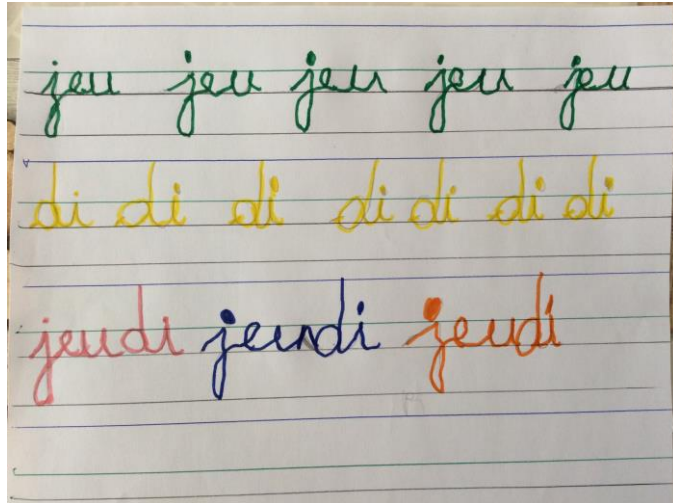 jeu jeu jeu jeu jeu
di di di di di di di
jeudi jeudi jeudi